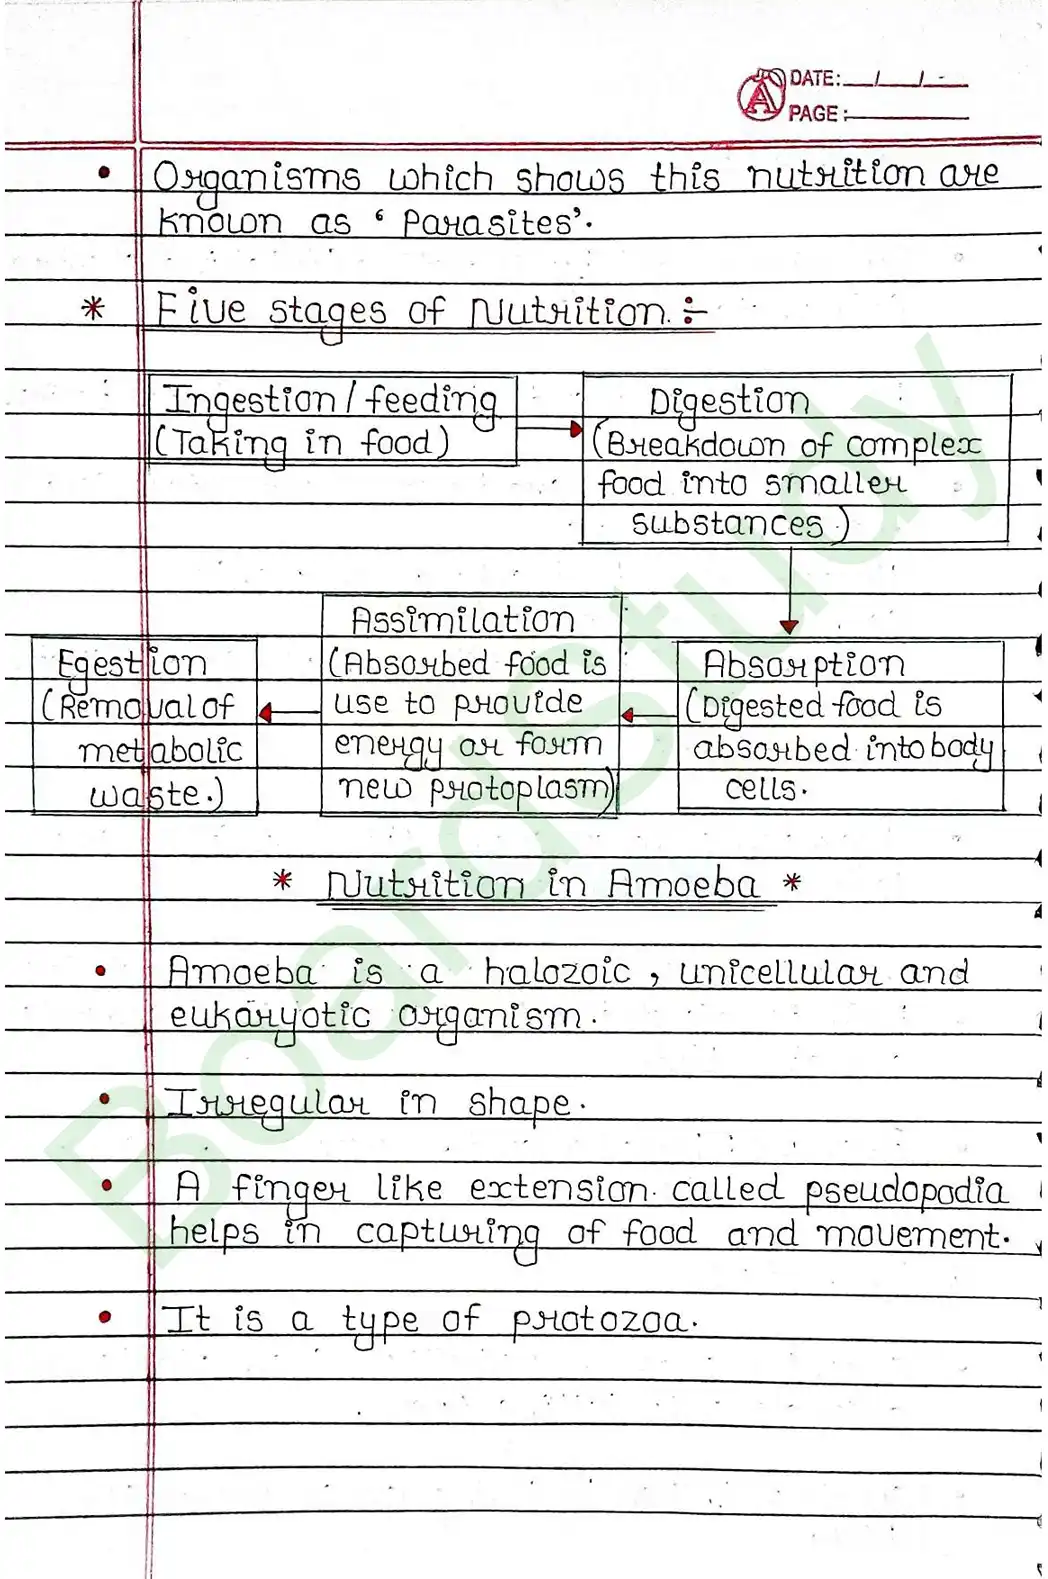 DATE: / /
PAGE:
• Organisms which shows this nutrition are
known as ‘Parasites’.
* Five stages of Nutrition :-
Ingestion / feeding
(Taking in food)
Digestion
(Breakdown of complex
food into smaller
substances.)
Absorption
(Digested food is
absorbed into body
cells.
Assimilation
(Absorbed food is
use to provide
energy or form
new protoplasm)
Egestion
(Removal of
metabolic
waste.)
* Nutrition in Amoeba *
• Amoeba is a halozoic, unicellular and
eukaryotic organism.
• Irregular in shape.
• A finger like extension called pseudopodia
helps in capturing of food and movement.
• It is a type of protozoa.
BoardStudy